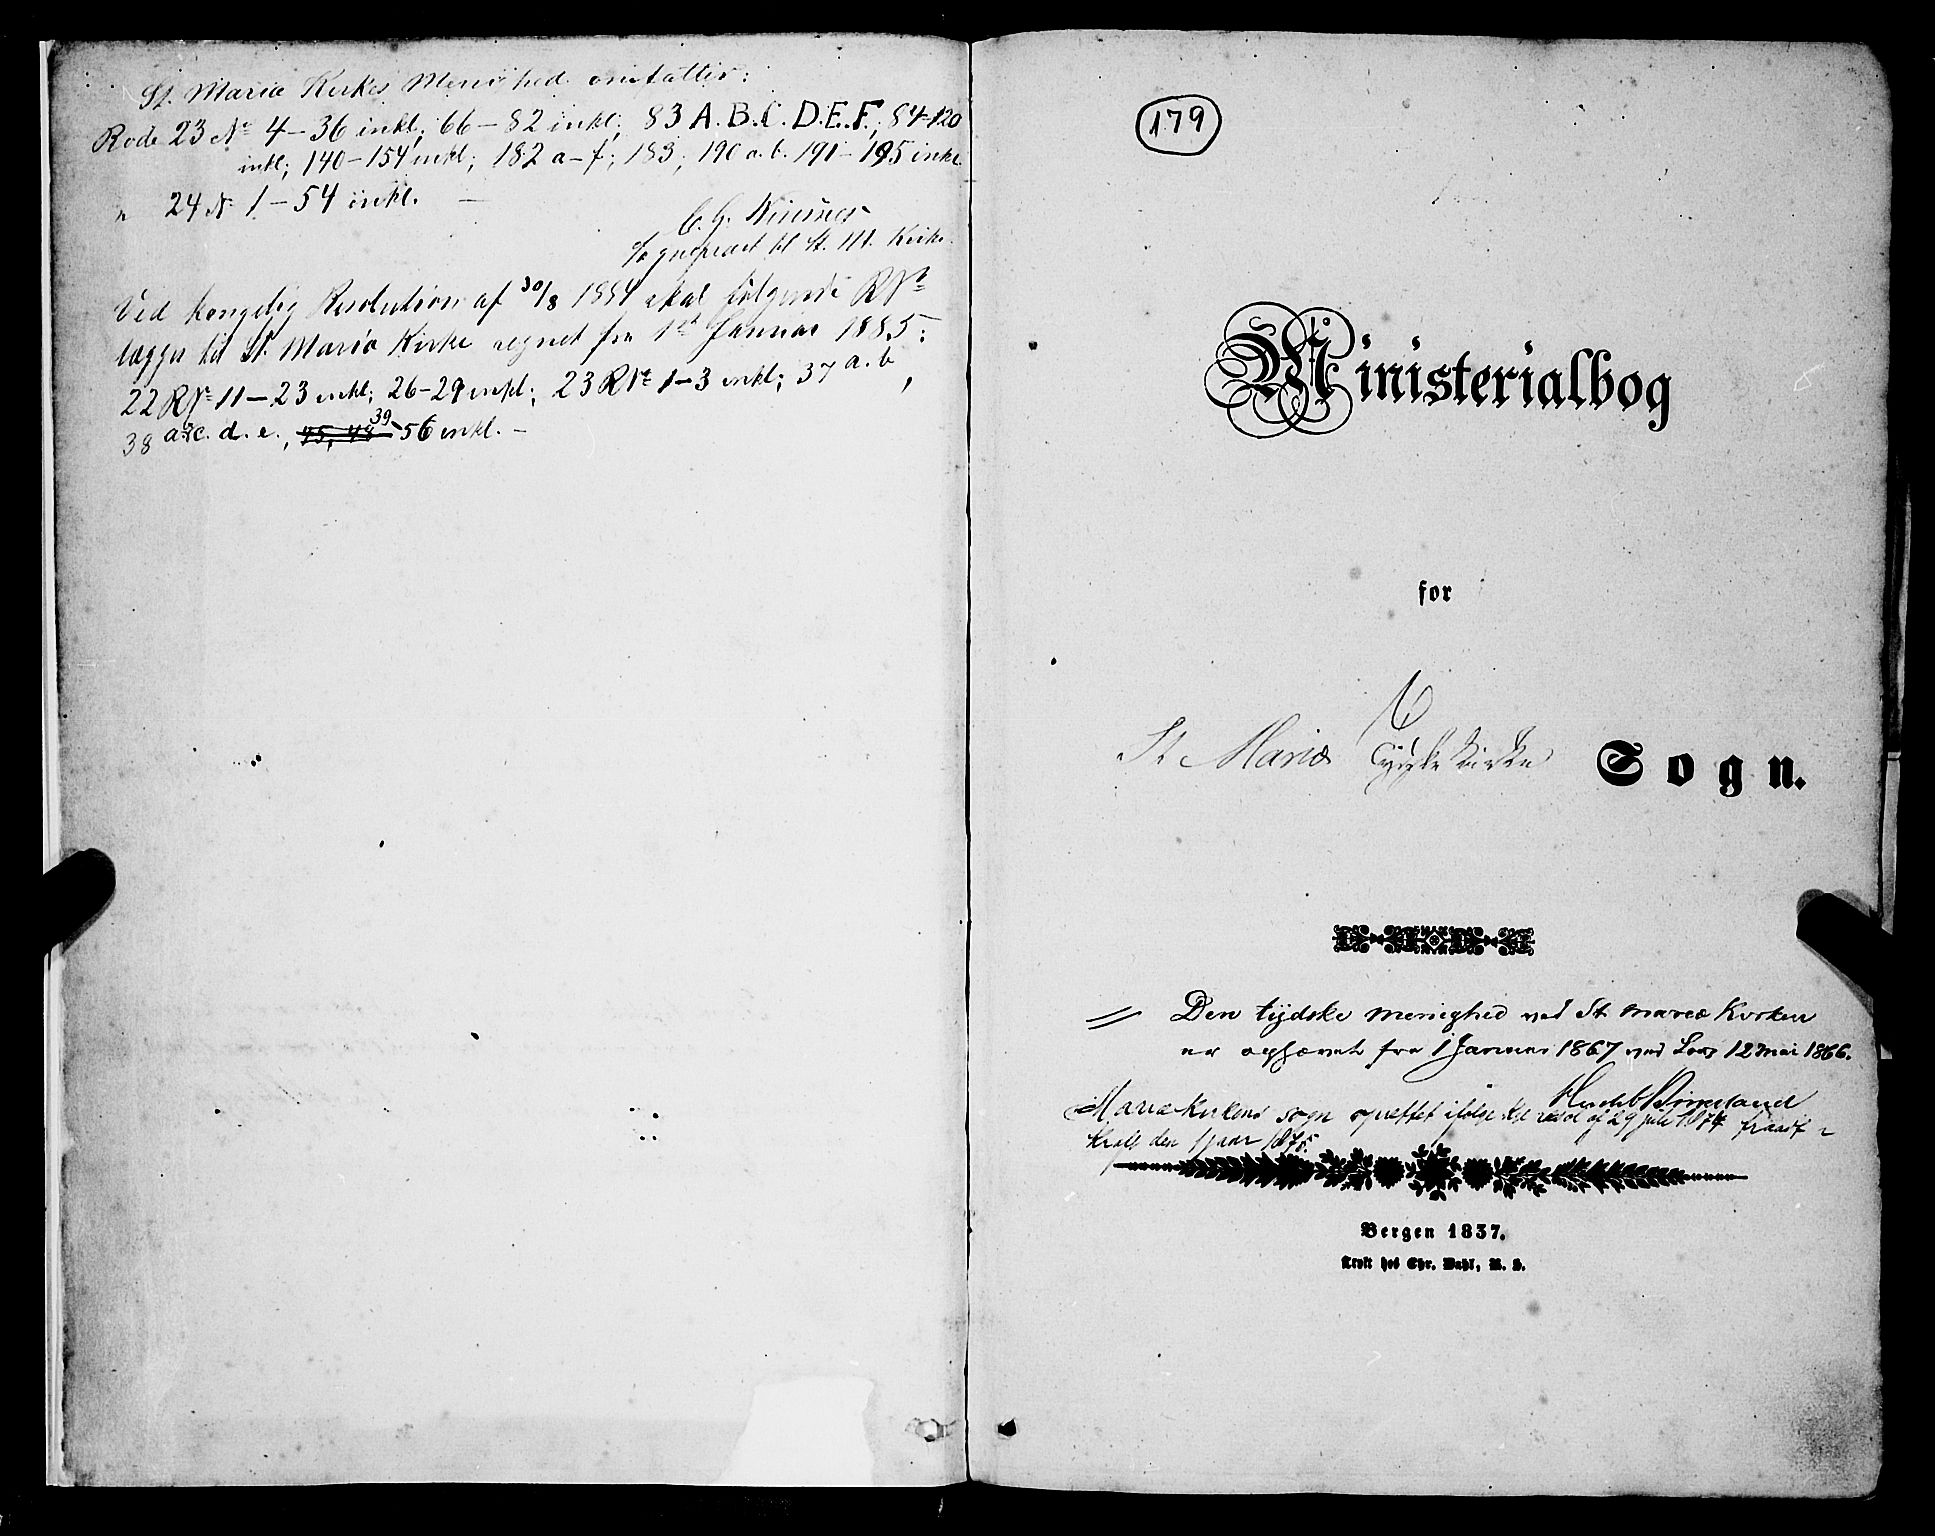 St. Mariæ Kirkes Menighed omfatter:
Rode 23 No 4-36 inkl; 66-82 inkl; 83 A.B.C.D.E.F.; 84-120
inkl; 140-154 inkl; 182 a-f; 183; 190 a.b. 191-195 inkl.
" 24 No 1-54 inkl. -
C. G.
Sognepræst til St. M. Kirke.
Ved kongelig Resolution af 30/8 1884 skal følgende RNo
lægges til St. Mariæ Kirke regnet fra 1st Januar 1885:
22 RNo 11-23 inkl; 26-29 inkl; 23 RNo 1-3 inkl; 37 a.b,
38 a&c. d. e., 39-56 inkl. -
179
Ministerialbog
for
St Mariæ Tydske Kirke Sogn.
Den tydske menighed ved St mariæ Kirken
er ophævet fra 1 Januar 1867 ved Lov 12 mai 1866.
Mariækirkens sogn oprettet ifølge kgl resol af 29 juli 1874 traadt i
kraft den 1 janr 1875.
Bergen 1837.
Trykt hos Chr. Dahl, R. S.